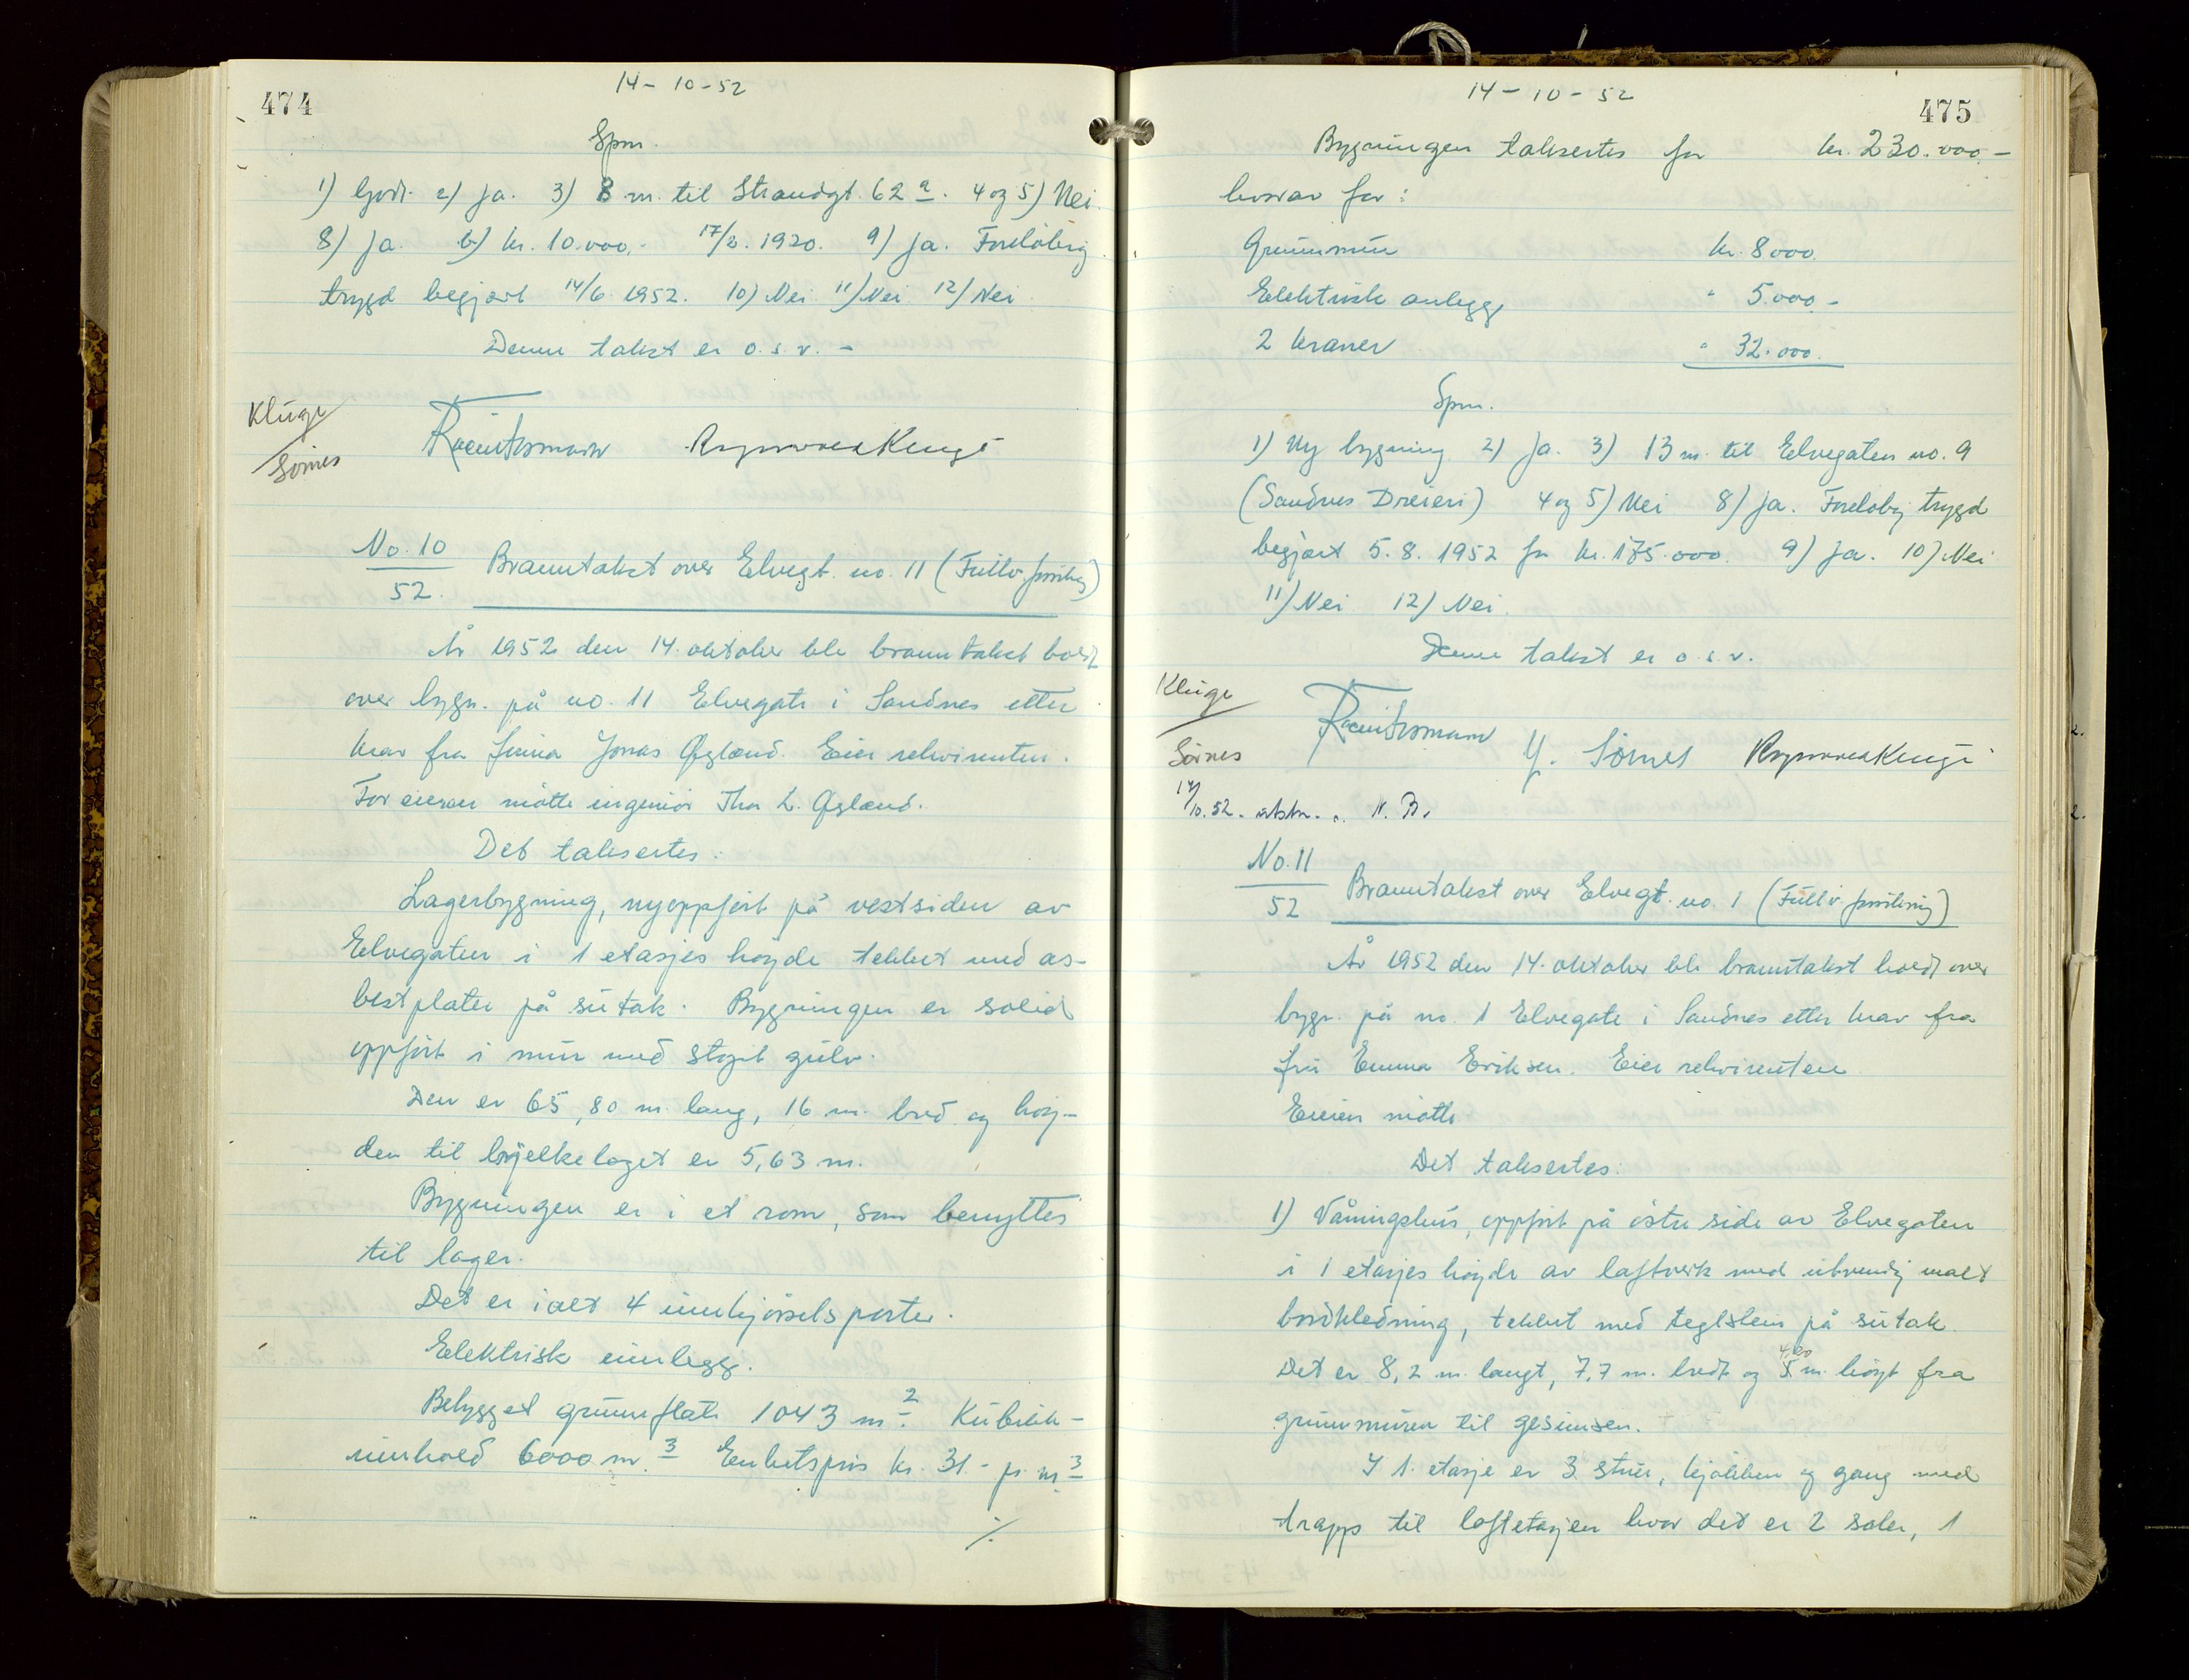 474
14-10-52
Spm.
1) Godt. 2) Ja. 3) 8 m. til Strandgt. 62 a. 4 og 5) Nei.
8) Ja. b) kr. 10.000.- 17/2. 1920. 9) Ja. Foreløbig
trygd begjært 14/6 1952. 10) Nei 11) Nei 12) Nei.
Denne takst er o.s.v. -
Kluge
Sørnes
No. 10
52.
Branntakst over Elvegt. no. 11 (Fullv. forsikring)
År 1952 den 14. oktober ble branntakst holdt
over bygn. på no. 11 Elvegate i Sandnes etter
krav fra firma Jonas Øglænd. Eier rekvirenten.
For eieren møtte ingeniør Thor L. Øglænd.
Det taksertes:
Lagerbygning, nyoppført på vestsiden av
Elvegaten i 1 etasjes høyde tekket med as-
bestplater på sutak. Bygningen er solid
oppført i mur med støpt gulv.
Den er 65,80 m. lang, 16 m. bred og høy-
den til bjelkelaget er 5,63 m.
Bygningen er i et rom, som benyttes
til lager.
Det er i alt 4 innkjørselsporter.
Elektrisk innlegg.
Bebygget grunnflate 1043 m.2 Kubikk-
innhold 6000 m.3 Enhetspris kr. 31.- pr. m.3
./.
475
14-10-52
Bygningen taksertes for kr. 230.000.-
hvorav for:
Grunnmur kr. 8000.
Elektrisk anlegg " 5.000.-
2 kraner " 32.000.
Spm.
1) Ny bygning 2) Ja. 3) 13 m. til Elvegaten no. 9
(Sandnes Dreieri) 4 og 5) Nei 8) Ja. Foreløbig trygd
begjært 5.8. 1952 for kr. 175.000. 9) Ja. 10) Nei
11) Nei 12) Nei.
Denne takst er o.s.v.
Kluge
Sørnes
Y. Sørnes
17/10.52. utskr. s. N. B.
No. 11
52
Branntakst over Elvegt. no. 1 (Fullv. forsikring)
År 1952 den 14. oktober ble branntakst holdt over
bygn. på no. 1 Elvegate i Sandnes etter krav fra
fru Emma Eriksen. Eier rekvirenten
Eieren møtte
Det taksertes:
1) Våningshus, oppført på østre side av Elvegaten
i 1 etasjes høyde av laftverk med utvendig malt
bordkledning, tekket med teglstein på sutak
Det er 8,2 m. langt, 7,7 m. bredt og 4,20 m. høyt fra
grunnmuren til gesimsen.
I 1. etasje er 3 stuer, kjøkken og gang med
trapp til loftetasjen hvor det er 2 saler, 1